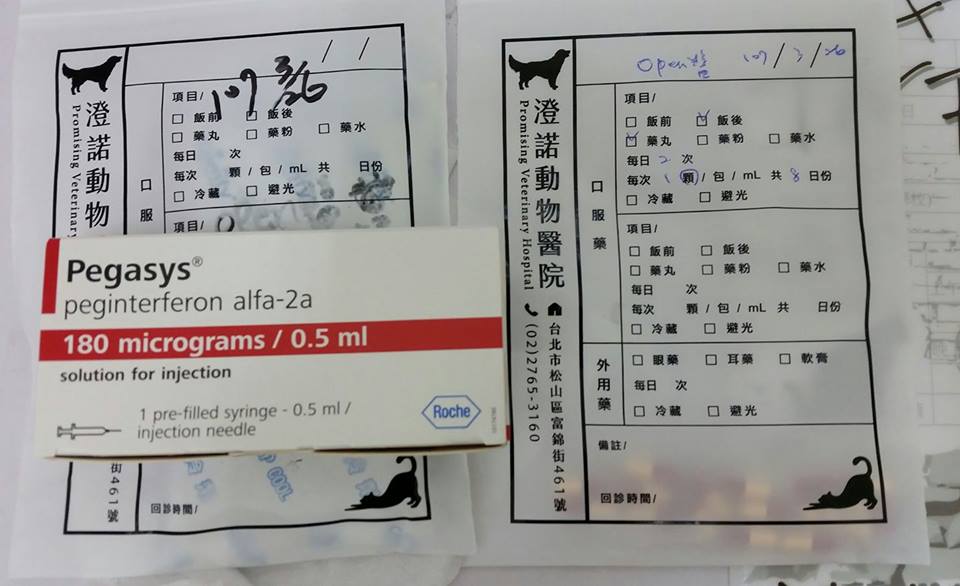 107 3/26
/ /
澄諾動物
Promising Veterinary
口服
項目/
□ 飯前 □ 飯後
□ 藥丸 □ 藥粉 □ 藥水
每日 次
每次 顆 / 包 / mL 共 日份
□ 冷藏 □ 避光
項目/
Pegasys®
peginterferon alfa-2a
180 micrograms / 0.5 ml
solution for injection
1 pre-filled syringe - 0.5 ml /
injection needle
Roche
COOL
街461號
回診時間/
Open 107/3/26
澄諾動物醫院
Promising Veterinary Hospital
(02)2765-3160
台北市松山區富錦街461號
口服藥
項目/
□ 飯前 ☑ 飯後
☑ 藥丸 □ 藥粉 □ 藥水
每日 2 次
每次 1 顆 / 包 / mL 共 8 日份
□ 冷藏 □ 避光
項目/
□ 飯前 □ 飯後
□ 藥丸 □ 藥粉 □ 藥水
每日 次
每次 顆 / 包 / mL 共 日份
□ 冷藏 □ 避光
外用藥
□ 眼藥 □ 耳藥 □ 軟膏
每日 次
□ 冷藏 □ 避光
備註/
回診時間/